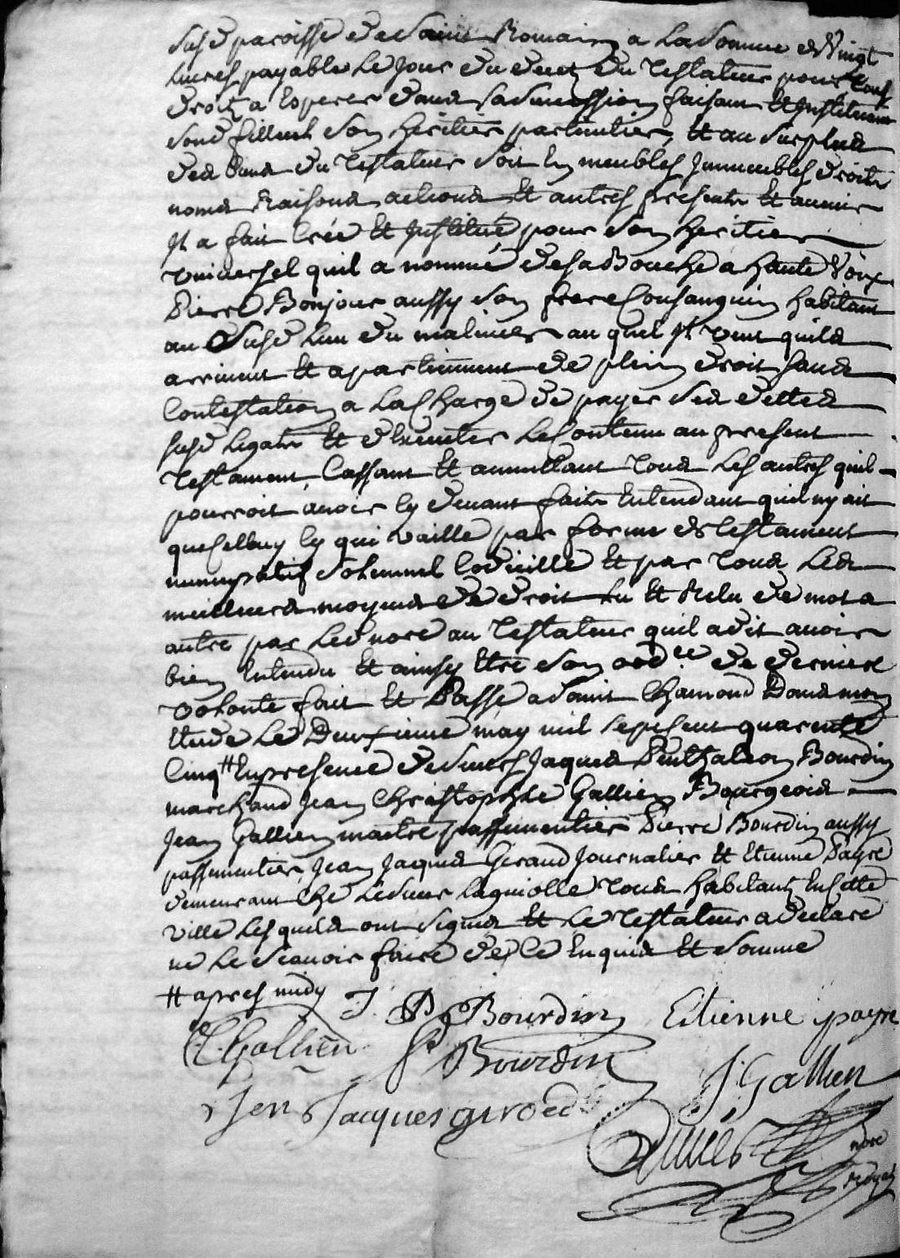 susd paroisse de Saint Romain a La Somme de Vingt
Livres payable Le jour du decez du Testateur pour tous
droitz a Esperer dans sa succession faisant et Instituant
sond filleul son heritier particulier et au surplus
des biens du Testateur soit En meubles Immeubles droits
noms Raisons actions et autres presents et avenir
Il a fait Créé et Institué pour son heritier
universel quil a nommé de sa Bouche a haute Voix
Pierre Bonjour aussy son frere Consanguin habitant
au Susd Lieu du maliner au quel Il veut quils
arrivent et apartiennent de plein droit sans
Contestation a La Charge de payer ses dettes
susd Legats et dexecuter Le Contenu au present
Testament, Cassant et annullant Tous Les autres quil
pourroit avoir Cy devant faits Entendant quil ny ait
que Celluy Cy qui vaille par forme de Testament
nuncupatif solemnel Codicille et par Tous Les
meilleurs moyens de droit Lu et Relu de mot a
autre par Led nore au Testateur quil a dit avoir
bien Entendu et ainsy Etre son ordce de derniere
volonté fait et Passé a Saint Chamond Dans mon
Etude Le Deuxieme may mil sept cent quarente
Cinq # En presence de Sieurs Jaques Penthaleon Bourdin
marchand Jean Christophle Gallien Bourgeois
Jean Gallien maitre passementier Pierre Bourdin aussy
passementier Jean Jaques Giraud Journalier et Etienne Payre
demeurant Ché Le Sieur Laguiolle Tous habitantz En cette
ville Les quels ont signés et Le Testateur a declaré
ne Le scavoir faire de Ce Enquis et Sommé
# apres midy J. P. Bourdin Etienne payre
C. Gallien P Bourdin J. Gallien
Jen Jacques giroed
nore
Royal